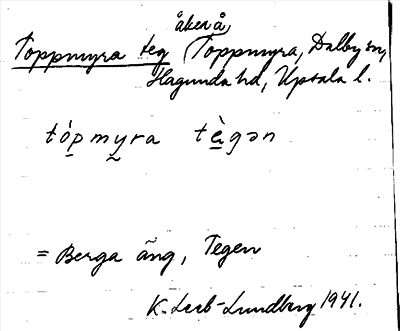 åker å
Toppmyra teg (Toppmyra, Dalby sn,
Hagunda hd, Upsala l.
tópmyra tègən
= Berga äng, Tegen
K. Leeb-Lundberg 1941.